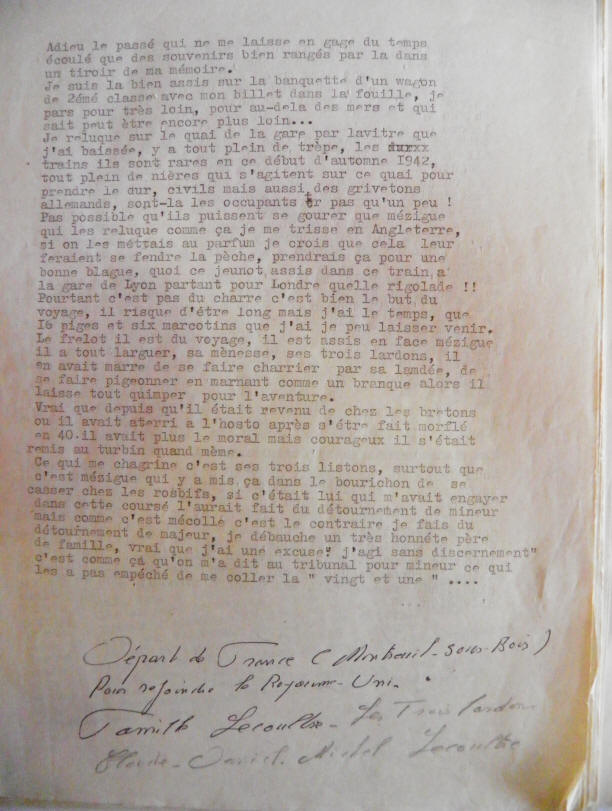 Adieu le passé qui ne me laisse en gage du temps
écoulé que des souvenirs bien rangés par la dans
un tiroir de ma mémoire.
Je suis la bien assis sur la banquette d'un wagon
de 2émé classe avec mon billet dans la fouille, je
pars pour très loin, pour au-dela des mers et qui
sait peut ètre encore plus loin...
Je reluque sur le quai de la gare par lavitre que
j'ai baissée, y a tout plein de trèpe, les
trains ils sont rares en ce début d'automne I942,
tout plein de nières qui s'agitent sur ce quai pour
prendre le dur, civils mais aussi des grivetons
allemands, sont-la les occupants pas qu'un peu !
Pas possible qu'ils puissent se gourer que mézigue
qui les reluque comme ça je me trisse en Angleterre,
si on les méttais au parfum je crois que cela leur
feraient se fendre la pèche, prendrais ça pour une
bonne blague, quoi ce jeunot assis dans ce train a
la gare de Lyon partant pour Londre quelle rigolade !!
Pourtant c'est pas du charre c'est bien le but du
voyage, il risque d'étre long mais j'ai le temps, que
I6 piges et six marcotins que j'ai je peu laisser venir.
Le frelot il est du voyage, il est assis en face mézigue
il a tout larguer, sa mènesse, ses trois lardons, il
en avait marre de se faire charrier par sa lamdée, de
se faire pigeonner en marnant comme un branque alors il
laisse tout quimper pour l'aventure.
Vrai que depuis qu'il était revenu de chez les bretons
ou il avait aterri a l'hosto après s'étre fait morflé
en 40.il avait plus le moral mais courageux il s'était
remis au turbin quand mème.
Ce qui me chagrine c'est ses trois listons, surtout que
c'est mézigue qui y a mis ça dans le bourichon de se
casser chez les rosbifs, si c'était lui qui m'avait engayer
dans cette coursé l'aurait fait du détournement de mineur
mais comme c'est mécolle c'est le contraire je fais du
détournement de majeur, je débauche un très honnéte père
de famille, vrai que j'ai une excuse" j'agi sans discernement"
c'est comme ça qu'on m'a dit au tribunal pour mineur ce qui
les a pas empéché de me coller la " vingt et une " ....
Départ de France (Montreuil-sous-Bois)
Pour rejoindre le Royaume-Uni.
Famille Lecoultre - Les Trois lardons
Claude - Daniel. Michel Lecoultre